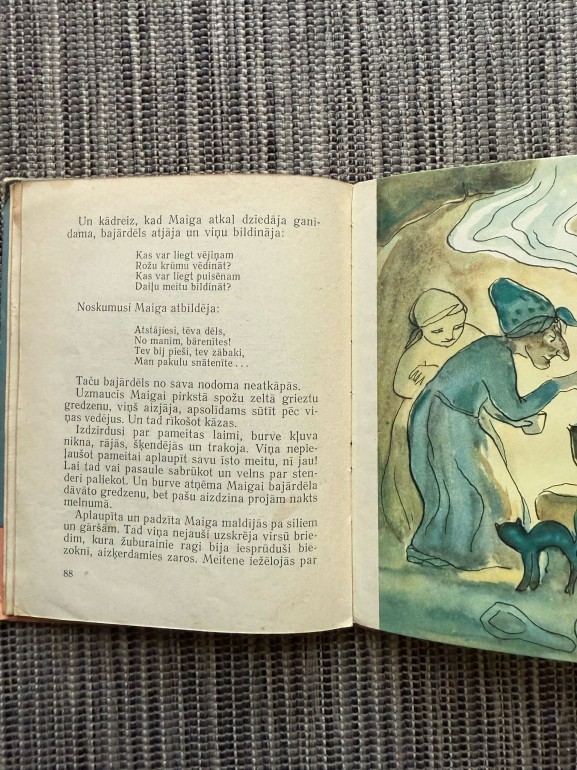 Un kādreiz, kad Maiga atkal dziedāja gani-
dama, bajārdēls atjāja un viņu bildināja:
Kas var liegt vējiņam
Rožu krūmu vēdināt?
Kas var liegt puisēnam
Daiļu meitu bildināt?
Noskumusi Maiga atbildēja:
Atstājiesi, tēva dēls,
No manim, bārenītes!
Tev bij pieši, tev zābaki,
Man pakulu snātenīte . . .
Taču bajārdēls no sava nodoma neatkāpās.
Uzmaucis Maigai pirkstā spožu zeltā grieztu
gredzenu, viņš aizjāja, apsolīdams sūtīt pēc vi-
ņas vedējus. Un tad rīkošot kāzas.
Izdzirdusi par pameitas laimi, burve kļuva
nikna, rājās, šķendējās un trakoja. Viņa nepie-
ļaušot pameitai aplaupīt savu īsto meitu, nī jau!
Lai tad vai pasaule sabrūkot un velns par sten-
deri paliekot. Un burve atņēma Maigai bajārdēla
dāvāto gredzenu, bet pašu aizdzina projām nakts
melnumā.
Aplaupīta un padzīta Maiga maldījās pa siliem
un gāršām. Tad viņa nejauši uzskrēja virsū brie-
dim, kura žuburainie ragi bija iesprūduši bie-
zoknī, aizķerdamies zaros. Meitene iežēlojās par
88